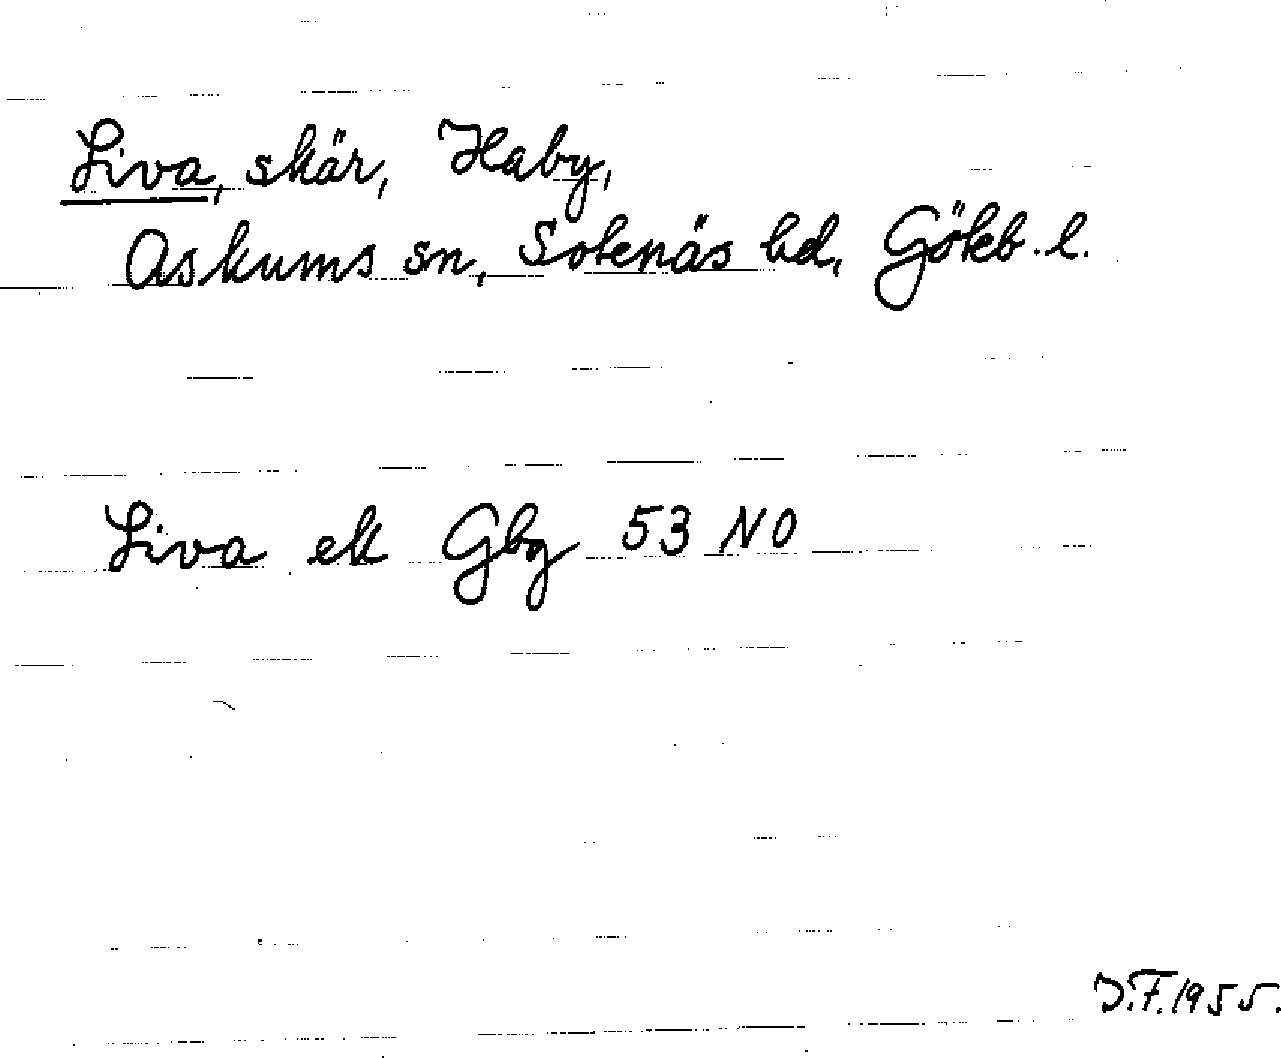 Liva, skär, Haby,
Askums sn, Sotenäs hd, Göteb. l.
Liva ek Gbg 53 NO
J.F. 1955.